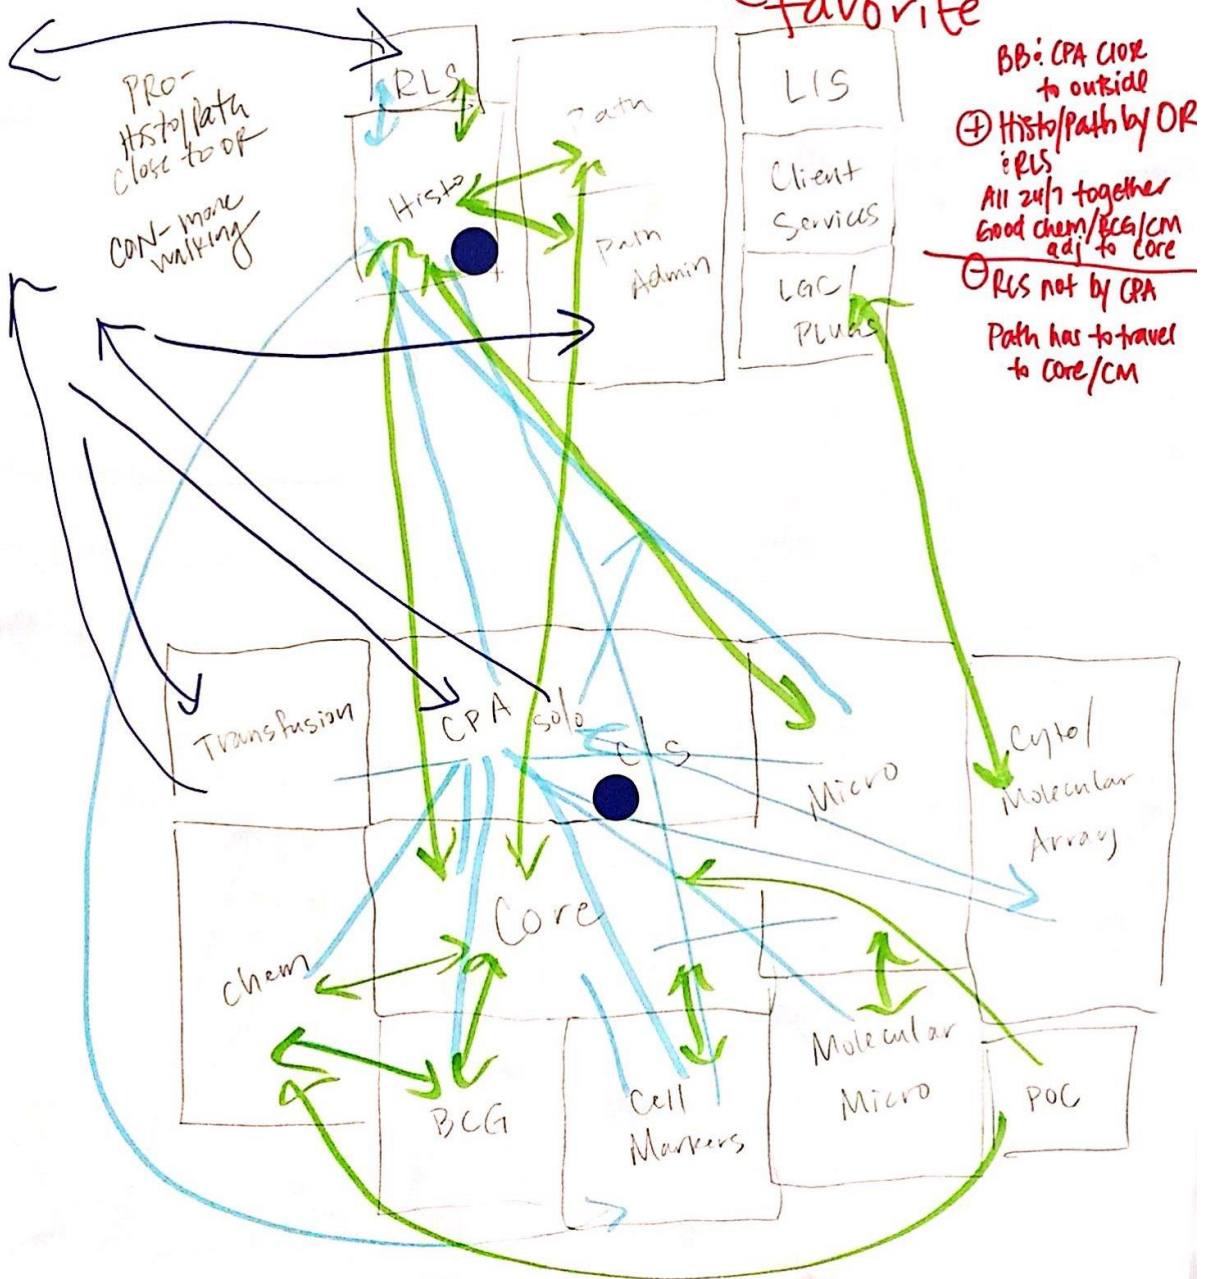 favorite
BB: CPA close
to outside
⊕ Histo/Path by OR
: RLS
All 24/7 together
Good chem/BCG/CM
adj to core
⊖ RLS not by CPA
Path has to travel
to Core/CM
PRO-
Histo/Path
close to OR
CON- more
walking
RLS
Histo
Path
Path
Admin
LIS
Client
Services
LGC/
Plugs
Transfusion
CPA
solo
C/S
Micro
Cyto/
Molecular
Array
Chem
Core
BCG
Cell
Markers
Molecular
Micro
POC